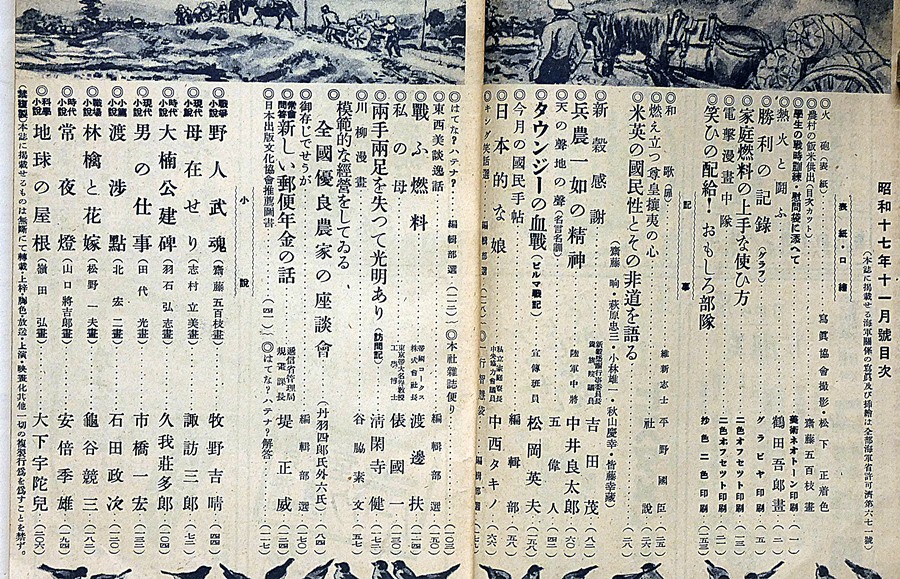 昭和十七年十一月號目次
(本誌に掲載せる海軍關係の寫眞及び挿繪は全部海軍省許可濟第六七一號)
表紙・口繪
◎火砲(表紙)…寫眞協會撮影・松下正着色
◎農村の飯米供出(目次カット)…齋藤五百枝畫
◎學生の戰時訓練・慰問袋に添へて…美術ネオトーン印刷(一)
◎熱火と鬪ふ…鶴田吾郎畫(二)
◎勝利の記錄(グラフ)…グラビヤ印刷(五)
◎家庭燃料の上手な使ひ方…二色オフセット印刷(三)
◎電擊漫畫中隊…二色オフセット印刷(二)
笑ひの配給!おもしろ部隊…抄色二色印刷(五三)
記事
和歌(扉)…維新志士 平野國臣(五)
燃え立つ尊皇攘夷の心…社說(六)
◎米英の國民性とその非道を語る…(二八)
(齋藤晌・萩原忠三・小林雄一・秋山慶幸・皆藤幸藏)
新穀感謝…新穀感謝行事委員長 貴族院議員 吉田茂(八二)
◎兵農一如の精神…陸軍中將 中井良太郎(六)
◎天の聲地の聲(名言名訓)…五偉人(四二)
◎タウンジーの血戰(ビルマ戰記)…宣傳班員 松岡英夫(六四)
◎今月の國民手帖…編輯部(六)
◎日本的な娘…中西タキノ(六六)
◎はてな?ハテナ?…編輯部選(一一二)◎本社雜誌便り…(一〇三)
◎東西美談逸話…編輯部選(五〇)
◎戰ふ燃料…帝國コークス株式會社社長 渡邊扶(二四)
◎私の母…俵國一(五〇)
◎兩手兩足を失つて光明あり(訪問記)…淸閑寺健(二)
◎川柳漫畫…谷脇素文(五七)
模範的な經營をしてゐる
全國優良農家の座談會…(丹羽四郎氏外六氏)(八四)
◎御存じでせうが…編輯部選(五〇)
◎常會問答 新しい郵便年金の話…遞信省管理局規畫課長 堤正威(二四)
◎日本出版文化協會推薦圖書…(四一)◎はてな?ハテナ?解答…(一一七)
小說
◎戰爭小說 野人武魂(齋藤五百枝畫)…牧野吉晴(四四)
◎現代小說 母在せり(志村立美畫)…諏訪三郎(七二)
◎時代小說 大楠公建碑(羽石弘志畫)…久我莊多郎(一〇四)
◎現代小說 男の仕事(田代光畫)…市橋一宏(一三)
◎小篇小說 渡の涉點(北宏二畫)…石田政次(三〇)
◎職場小說 林檎と花嫁(松野一夫畫)…龜谷競三(八二)
◎時代小說 常夜燈(山口將吉郎畫)…安倍季雄(九四)
◎科學小說 地球の屋根(嶺田弘畫)…大下宇陀兒(一〇六)
禁複製 本誌に掲載せるものは無斷にて轉載・上梓・脚色・放送・上演・映畫化其他一切の複製行爲を爲すことを禁ず。